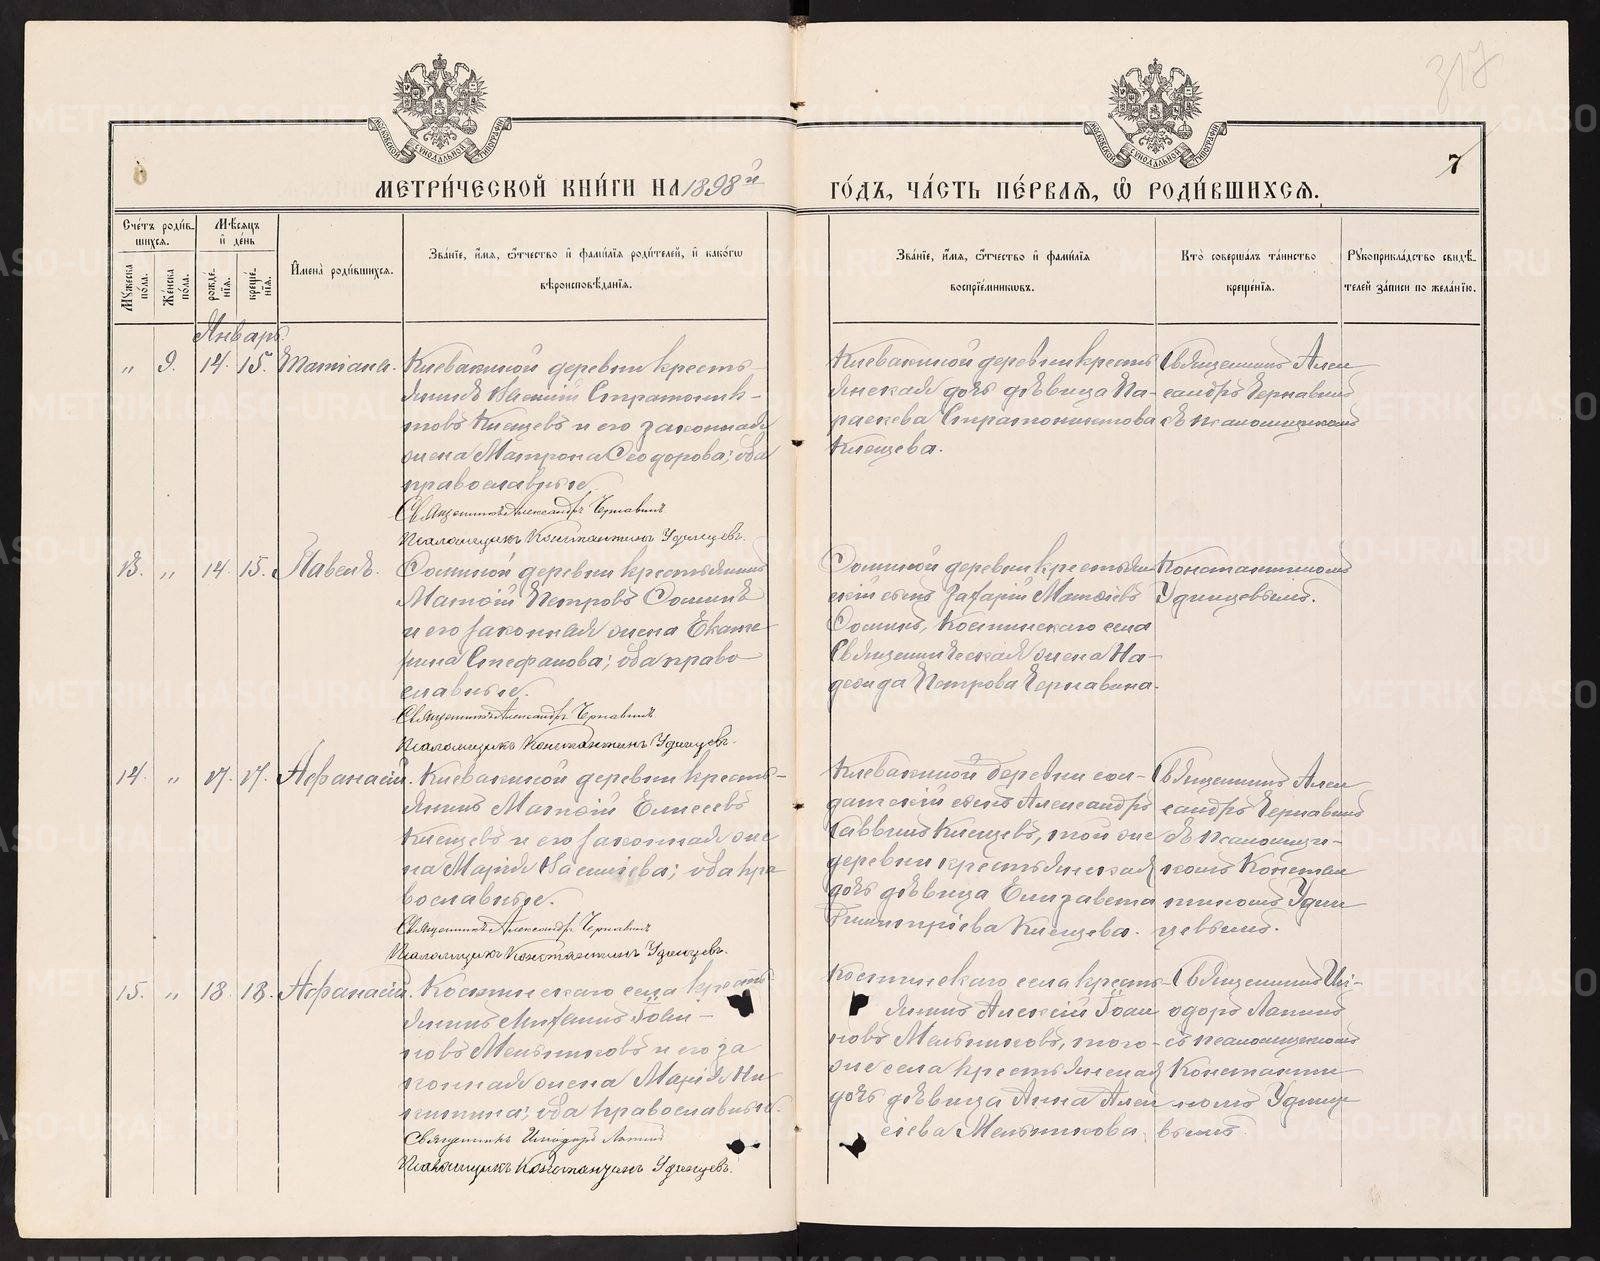 317
7
МЕТРИ́ЧЕСКОЙ КНИ́ГИ НА 1898й
ГО́ДЪ, ЧА́СТЬ ПЕ́РВАѦ, Ѽ РОДИ́ВШИХСѦ.
Сче́тъ роди́в-
шихсѧ.
Мꙋ́жеска по́ла.
Же́нска по́ла.
Мѣ́сѧцъ и҆ де́нь
рожде́нїѧ.
креще́нїѧ.
И҆мена̀ роди́вшихсѧ.
Зва́нїе, и҆́мѧ, ѻ҆́тчество и҆ фами́лїѧ роди́телей, и҆ како́гѡ
вѣроисповѣ́данїѧ.
Зва́нїе, и҆́мѧ, ѻ҆́тчество и҆ фами́лїѧ
воспрїе́мникѡвъ.
Кто̀ соверша́лъ та́инство
креще́нїѧ.
Рꙋкоприкла́дство свидѣ́-
телей за́писи по жела́нїю.
Январь.
„ 9. 14. 15. Татiана. Клевакиной деревни кресть-
янинъ Василiй Стратоник-
товъ Клещевъ и его законная
жена Матрона Ѳеодорова; оба
православные.
Священникъ Александръ Чернавинъ
Псаломщикъ Константинъ Удинцевъ.
Клевакиной деревни кресть-
янская дочь дѣвица Па-
раскева Стратониктова
Клещева.
Священникъ Алек-
сандръ Чернавинъ
съ псаломщикомъ
13. „ 14. 15. Павелъ. Сохиной деревни крестьянинъ
Матѳiй Петровъ Сохинъ
и его законная жена Екате-
рина Стефанова; оба право-
славные.
Священникъ Александръ Чернавинъ.
Псаломщикъ Константинъ Удинцевъ.
Сохиной деревни крестьян-
скiй сынъ Захарiй Матѳiевъ
Сохинъ, Костинскаго села
Священническая жена На-
дежда Петрова Чернавина.
Константиномъ
Удинцевымъ.
14. „ 17. 17. Аѳанасiй. Клевакиной деревни кресть-
янинъ Матѳiй Елисеевъ
Клещевъ и его законная же-
на Марiя Васильева; оба пра-
вославные.
Священникъ Александръ Чернавинъ
Псаломщикъ Константинъ Удинцевъ.
Клевакиной деревни сол-
датскiй сынъ Александръ
Саввинъ Клещевъ, той же
деревни крестьянская
дочь дѣвица Елизавета
Димитрiева Клещева.
Священникъ Алек-
сандръ Чернавинъ
съ псаломщи-
комъ Констан-
тиномъ Удин-
цевымъ.
15. „ 18. 18. Аѳанасiй. Костинскаго села кресть-
янинъ Михаилъ Iоан-
новъ Мельниковъ и его за-
конная жена Марiя Ни-
китина; оба православные.
Священникъ Исидоръ Лапинъ
Псаломщикъ Константинъ Удинцевъ.
Костинскаго села кресть-
янинъ Алексiй Iоан-
новъ Мельниковъ, того-
же села крестьянская
дочь дѣвица Анна Алек-
сiева Мельникова.
Священникъ Иси-
доръ Лапинъ
съ псаломщикомъ
Константи-
номъ Удинце-
вымъ.
METRIKI.GASO-URAL.RU